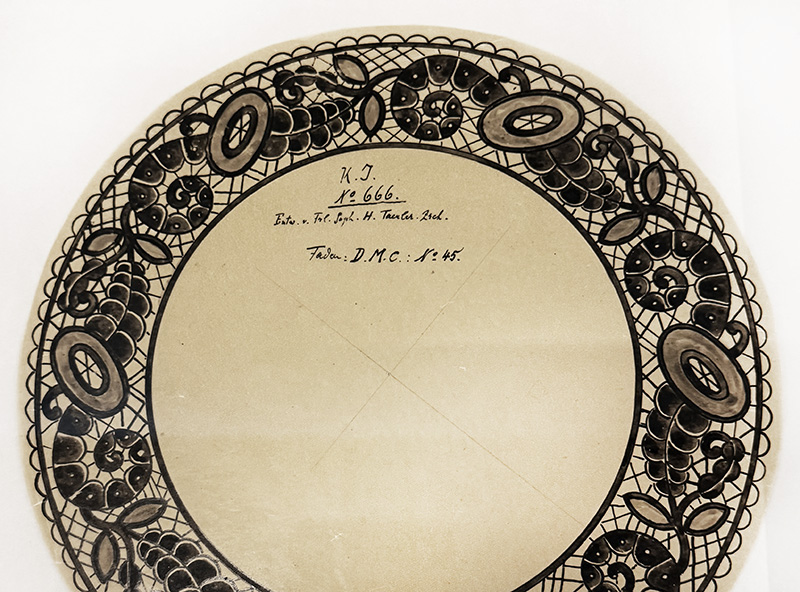 K. J.
No 666.
Entw. v. Frl. Soph. H. Taexler. Zsch.
Faden: D. M. C.: No 45.